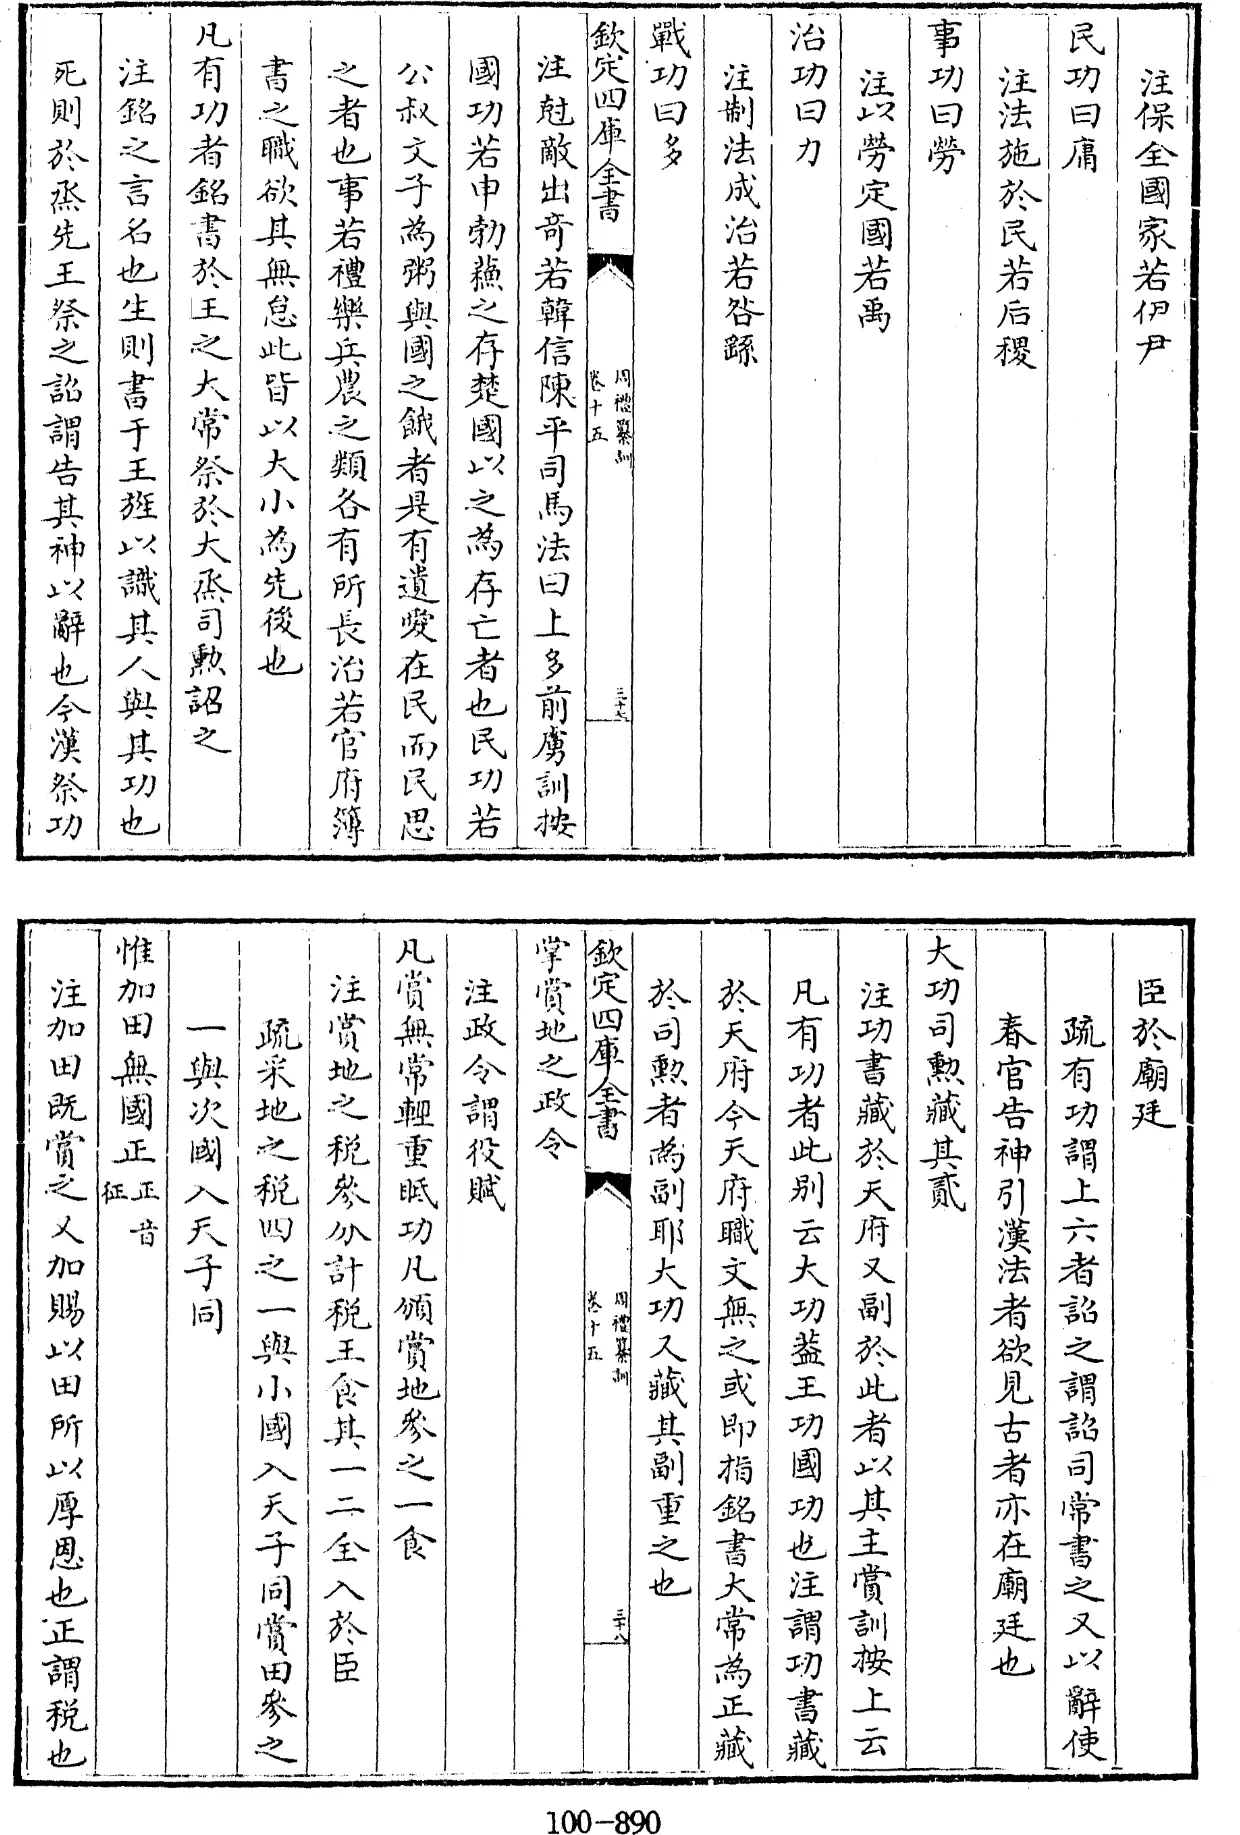 注保全國家若伊尹
民功曰庸
注法施於民若后稷
事功曰勞
注以勞定國若禹
治功曰力
注制法成治若咎繇
戰功曰多
欽定四庫全書
周禮纂訓
卷十五
三十七
注尅敵出竒若韓信陳平司馬法曰上多前虜訓按
國功若申勃蘓之存楚國以之為存亡者也民功若
公叔文子為粥與國之餓者是有遺愛在民而民思
之者也事若禮樂兵農之類各有所長治若官府簿
書之職欲其無怠此皆以大小為先後也
凡有功者銘書於王之大常祭於大烝司勲詔之
注銘之言名也生則書于王旌以識其人與其功也
死則於烝先王祭之詔謂告其神以辭也今漢祭功
臣於廟廷
疏有功謂上六者詔之謂詔司常書之又以辭使
春官告神引漢法者欲見古者亦在廟廷也
大功司勲藏其貳
注功書藏於天府又副於此者以其主賞訓按上云
凡有功者此别云大功葢王功國功也注謂功書藏
於天府今天府職文無之或即指銘書大常為正藏
於司勲者為副耶大功又藏其副重之也
欽定四庫全書
周禮纂訓
卷十五
三十八
掌賞地之政令
注政令謂役賦
凡賞無常輕重眂功凡頒賞地參之一食
注賞地之稅參分計稅王食其一二全入於臣
疏采地之稅四之一與小國入天子同賞田參之
一與次國入天子同
惟加田無國正正音征
注加田既賞之又加賜以田所以厚恩也正謂稅也
100-890